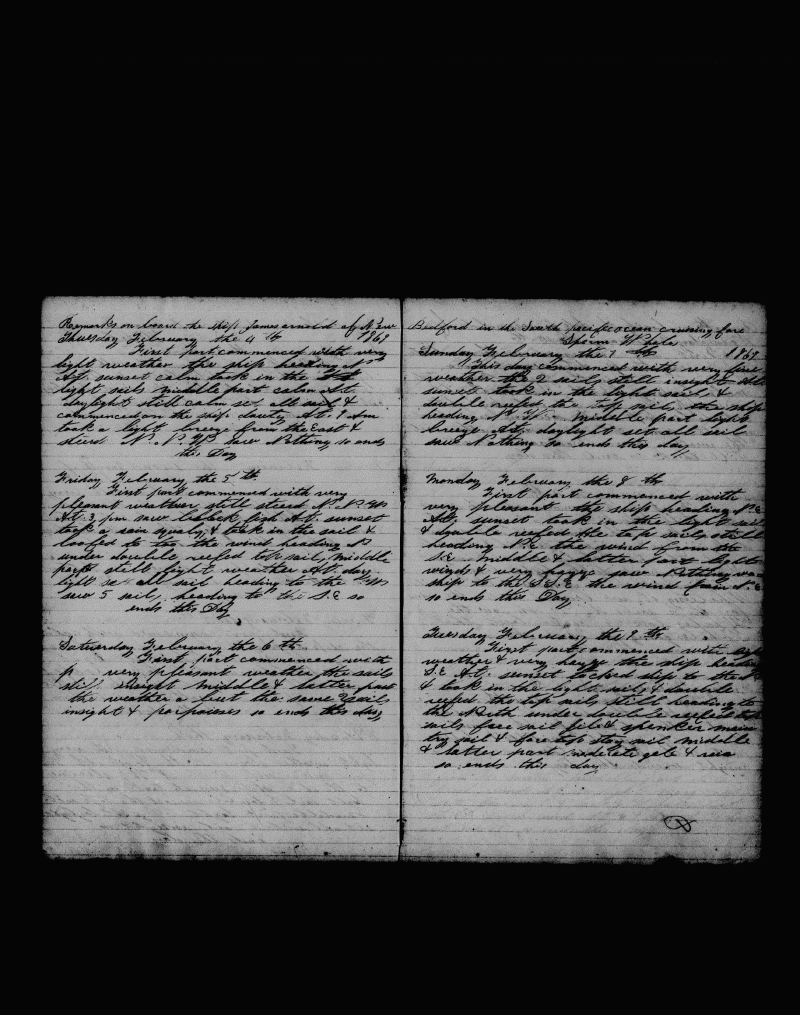 Remarks on board the ship James arnold of New
Thursday February the 4 th 1869
First part commenced with very
light weather the ship heading N
At sunset calm took in the
light sails Middle part calm At
daylight still calm set all sail &
commenced on the ships duty At 9 Am
took a light breeze from the East &
steerd N. N. W saw Nothing so ends
this Day
Friday February the 5 th
First part commenced with very
pleasant weather still steerd N. N. W
At 3 pm saw black fish At sunset
took a rain squaly & took in the sail &
loofed to the wind heading N
under double reefed top sails Middle
part still light weather At day
light set all sail heading to the
saw 5 sails heading to S.E so
ends this Day
Saturday February the 6 th
First part commenced with
very pleasant weather the sails
still insight Middle & latter part
the weather a bout the same 2 sails
insight & porpoises so ends this day
Bedford in the South pacific ocean cruising fore
Sperm Whales
Sunday February the 7 th 1869
This day commenced with very fine
weather the 2 sails still insight At
sunset took in the light sails &
double reefed the top sails the ship
heading N. W. Middle part light
breeze At daylight set all sail
saw Nothing so ends this day
Monday February the 8 th
First part commenced with
very pleasant the ship heading N.E
At sunset took in the light sails
& double reefed the top sails still
heading N.E the wind from the
S.E Middle & latter part light
winds & very foggy saw Nothing
ship to the S.S.E the wind from N.E
so ends this Day
Tuesday February the 9 th
First part commenced with
weather & very heavy the ship heading
S.E At sunset tacked ship to the N
& took in the light sails & double
reefed the top sails still heading to
the North under double reefed top
sails fore sail jib & spenker main
try sail & fore top stay sail Middle
& latter part moderate gale & rain
so ends this day